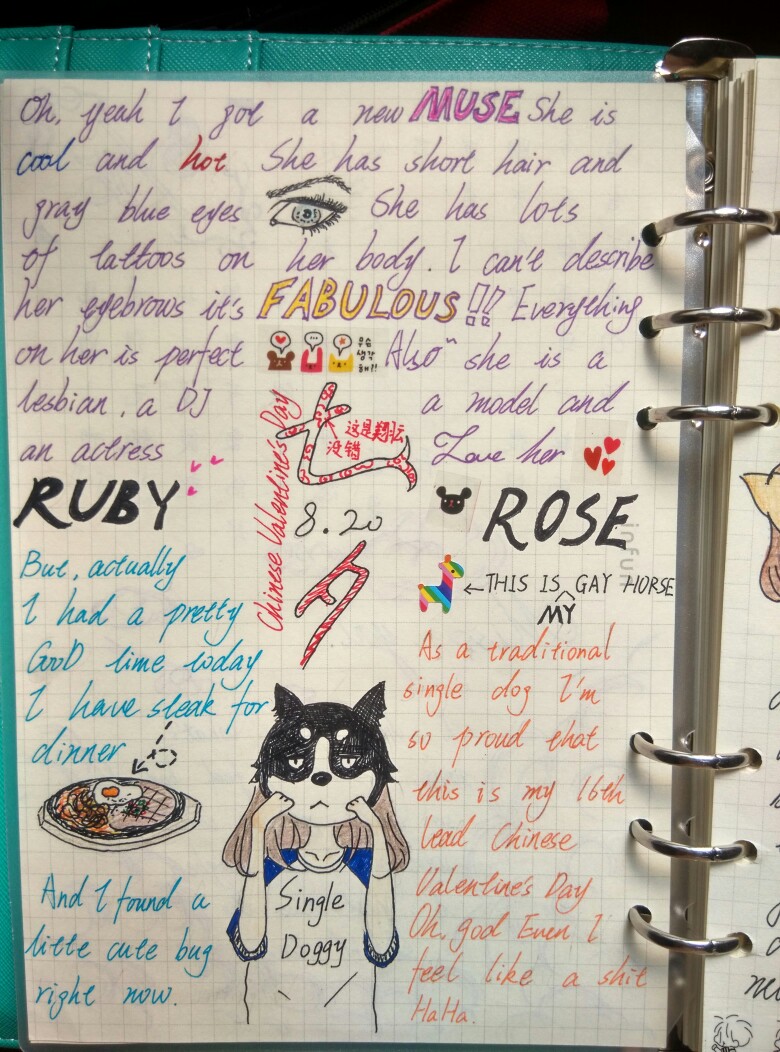 Oh, yeah I got a new MUSE She is
cool and hot She has short hair and
gray blue eyes She has lots
of tattoos on her body. I can't describe
her eyebrows it's FABULOUS!! Everything
on her is perfect
우승
생각
해!!
Also~ she is a
lesbian, a DJ
a model and
an actress
Love her
RUBY
ROSE
Chinese Valentine's Day
七
这是翔坛
没错
8.20
夕
←THIS IS MY GAY HORSE
But, actually
I had a pretty
GooD time today
I have steak for
dinner
And I found a
litte cute bug
right now.
Single
Doggy
As a traditional
single dog I'm
so proud that
this is my 16th
lead Chinese
Valentine's Day
Oh, god Even I
feel like a shit
HaHa.
infu